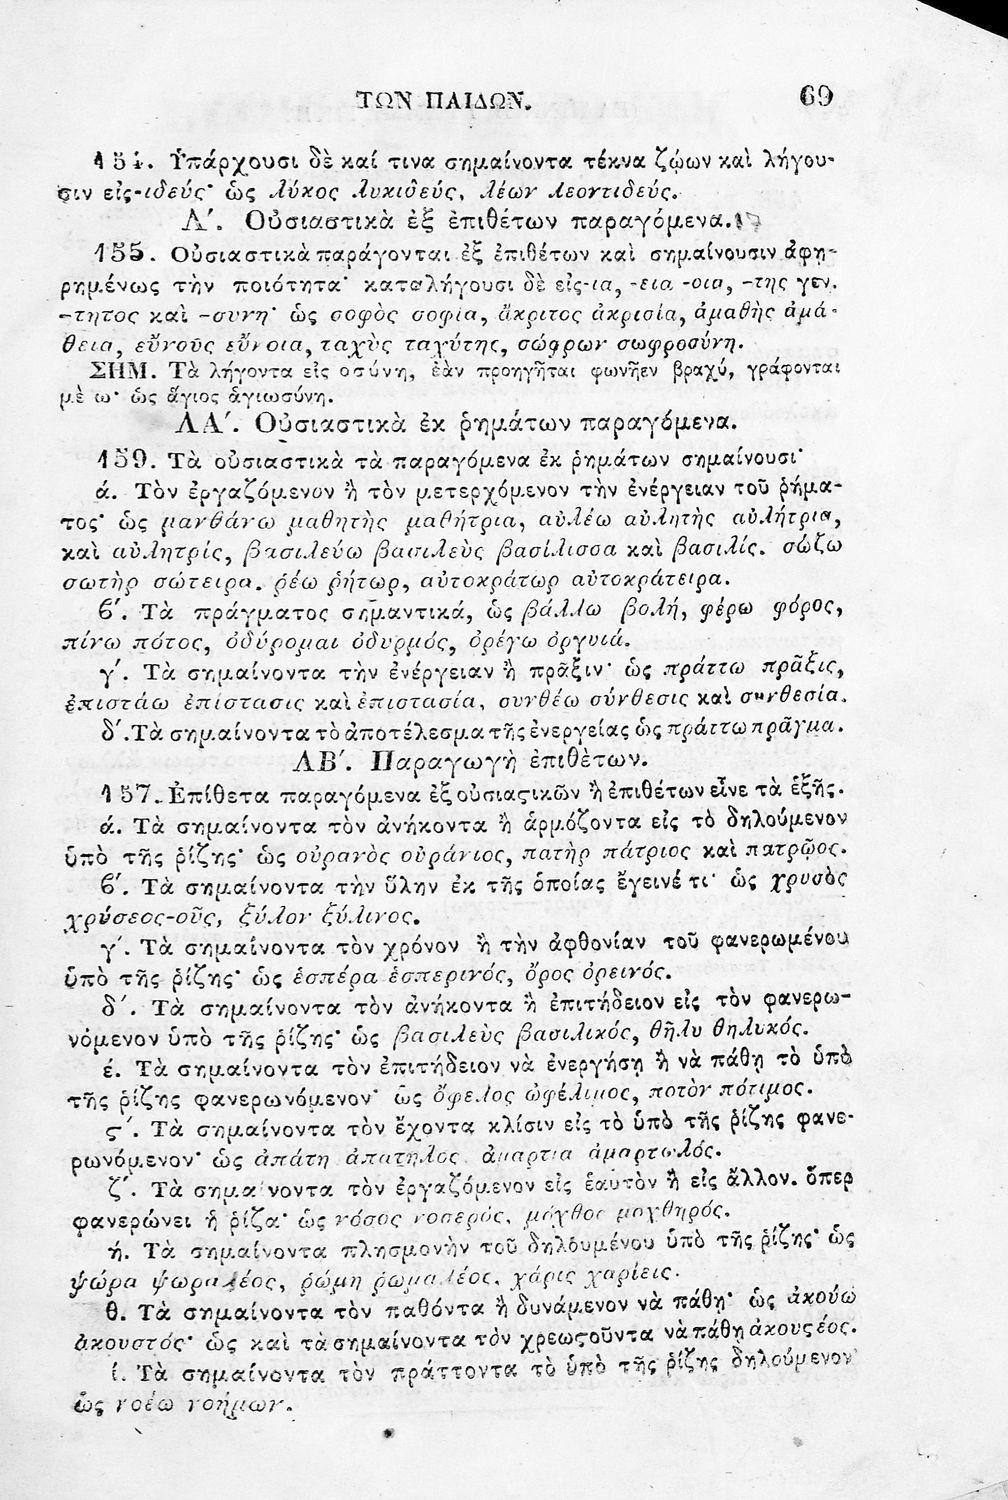 ΤΩΝ ΠΑΙΔΩΝ. 69
154. Ὑπάρχουσι δὲ καί τινα σημαίνοντα τέκνα ζῴων καὶ λήγου-
σιν εἰς-ιδεύς· ὡς λύκος λυκιδεύς, λέων λεοντιδεύς.
Λ΄. Οὐσιαστικὰ ἐξ ἐπιθέτων παραγόμενα.
155. Οὐσιαστικὰ παράγονται ἐξ ἐπιθέτων καὶ σημαίνουσιν ἀφῃ-
ρημένως τὴν ποιότητα· καταλήγουσι δὲ εἰς-ια, -εια -οια, -της γεν.
-τητος καὶ -συνη· ὡς σοφὸς σοφία, ἄκριτος ἀκρισία, ἀμαθὴς ἀμά-
θεια, εὔνους εὔνοια, ταχὺς ταχύτης, σώφρων σωφροσύνη.
ΣΗΜ. Τὰ λήγοντα εἰς οσύνη, ἐὰν προηγῆται φωνῆεν βραχύ, γράφονται
μὲ ω· ὡς ἅγιος ἁγιωσύνη.
ΛΑ΄. Οὐσιαστικὰ ἐκ ῥημάτων παραγόμενα.
159. Τὰ οὐσιαστικὰ τὰ παραγόμενα ἐκ ῥημάτων σημαίνουσι·
ά. Τὸν ἐργαζόμενον ἢ τὸν μετερχόμενον τὴν ἐνέργειαν τοῦ ῥήμα-
τος· ὡς μανθάνω μαθητὴς μαθήτρια, αὐλέω αὐλητὴς αὐλήτρια,
καὶ αὐλητρίς, βασιλεύω βασιλεὺς βασίλισσα καὶ βασιλίς. σώζω
σωτὴρ σώτειρα. ῥέω ῥήτωρ, αὐτοκράτωρ αὐτοκράτειρα.
ϐ΄. Τὰ πράγματος σημαντικά, ὡς βάλλω βολή, φέρω φόρος,
πίνω πότος, ὀδύρομαι ὀδυρμός, ὀρέγω ὀργυιά.
γ΄. Τὰ σημαίνοντα τὴν ἐνέργειαν ἢ πρᾶξιν· ὡς πράττω πρᾶξις,
ἐπιστάω ἐπίστασις καὶ ἐπιστασία, συνθέω σύνθεσις καὶ συνθεσία.
δ΄. Τὰ σημαίνοντα τὸ ἀποτέλεσμα τῆς ἐνεργείας ὡς πράττω πρᾶγμα.
ΛΒ΄. Παραγωγὴ ἐπιθὲτων.
157. Ἐπίθετα παραγόμενα ἐξ οὐσιαϛικῶν ἢ ἐπιθέτων εἶνε τὰ ἑξῆς.
ά. Τὰ σημαίνοντα τὸν ἀνήκοντα ἢ ἁρμόζοντα εἰς τὸ δηλούμενον
ὑπὸ τῆς ῥίζης· ὡς οὐρανὸς οὐράνιος, πατὴρ πάτριος καὶ πατρῷος.
ϐ΄. Τὰ σημαίνοντα τὴν ὕλην ἐκ τῆς ὁποίας ἔγεινέ τι· ὡς χρυσὸς
χρύσεος-οῦς, ξύλον ξύλινος.
γ΄. Τὰ σημαίνοντα τὸν χρόνον ἢ τὴν ἀφθονίαν τοῦ φανερωμένου
ὑπὸ τῆς ῥίζης· ὡς ἑσπέρα ἑσπερινός, ὄρος ὀρεινός.
δ΄. Τὰ σημαίνοντα τὸν ἀνήκοντα ἢ ἐπιτήδειον εἰς τὸν φανερω-
νόμενον ὑπὸ τῆς ῥίζης· ὡς βασιλεὺς βασιλικός, θῆλυ θηλυκός.
έ. Τὰ σημαίνοντα τὸν ἐπιτήδειον νὰ ἐνεργήσῃ ἢ νὰ πάθῃ τὸ ὑπὸ
τῆς ῥίζης φανερωνόμενον· ὡς ὄφελος ὠφέλιμος, ποτὸν πότιμος.
ϛ΄. Τὰ σημαίνοντα τὸν ἔχοντα κλίσιν εἰς τὸ ὑπὸ τῆς ῥίζης φανε-
ρωνόμενον· ὡς ἀπάτη ἀπατηλός, ἁμαρτία ἁμαρτωλός.
ζ΄. Τὰ σημαίνοντα τὸν ἐργαζόμενον εἰς ἑαυτὸν ἢ εἰς ἄλλον. ὅπερ
φανερώνει ἡ ῥίζα· ὡς νόσος νοσερός, μόχθος μοχθηρός.
ή. Τὰ σημαίνοντα πλησμονὴν τοῦ δηλουμένου ὑπὸ τῆς ῥίζης· ὡς
ψώρα ψωραλέος, ῥώμη ῥωμαλέος, χάρις χαρίεις.
θ. Τὰ σημαίνοντα τὸν παθόντα ἢ δυνάμενον νὰ πάθῃ· ὡς ἀκούω
ἀκουστός· ὡς καὶ τὰ σημαίνοντα τὸν χρεωϛοῦντα νὰ πάθῃ ἀκουϛέος.
ί. Τὰ σημαίνοντα τὸν πράττοντα τὸ ὑπὸ τῆς ῥίζης δηλούμενον
ὡς νοέω νοήμων.